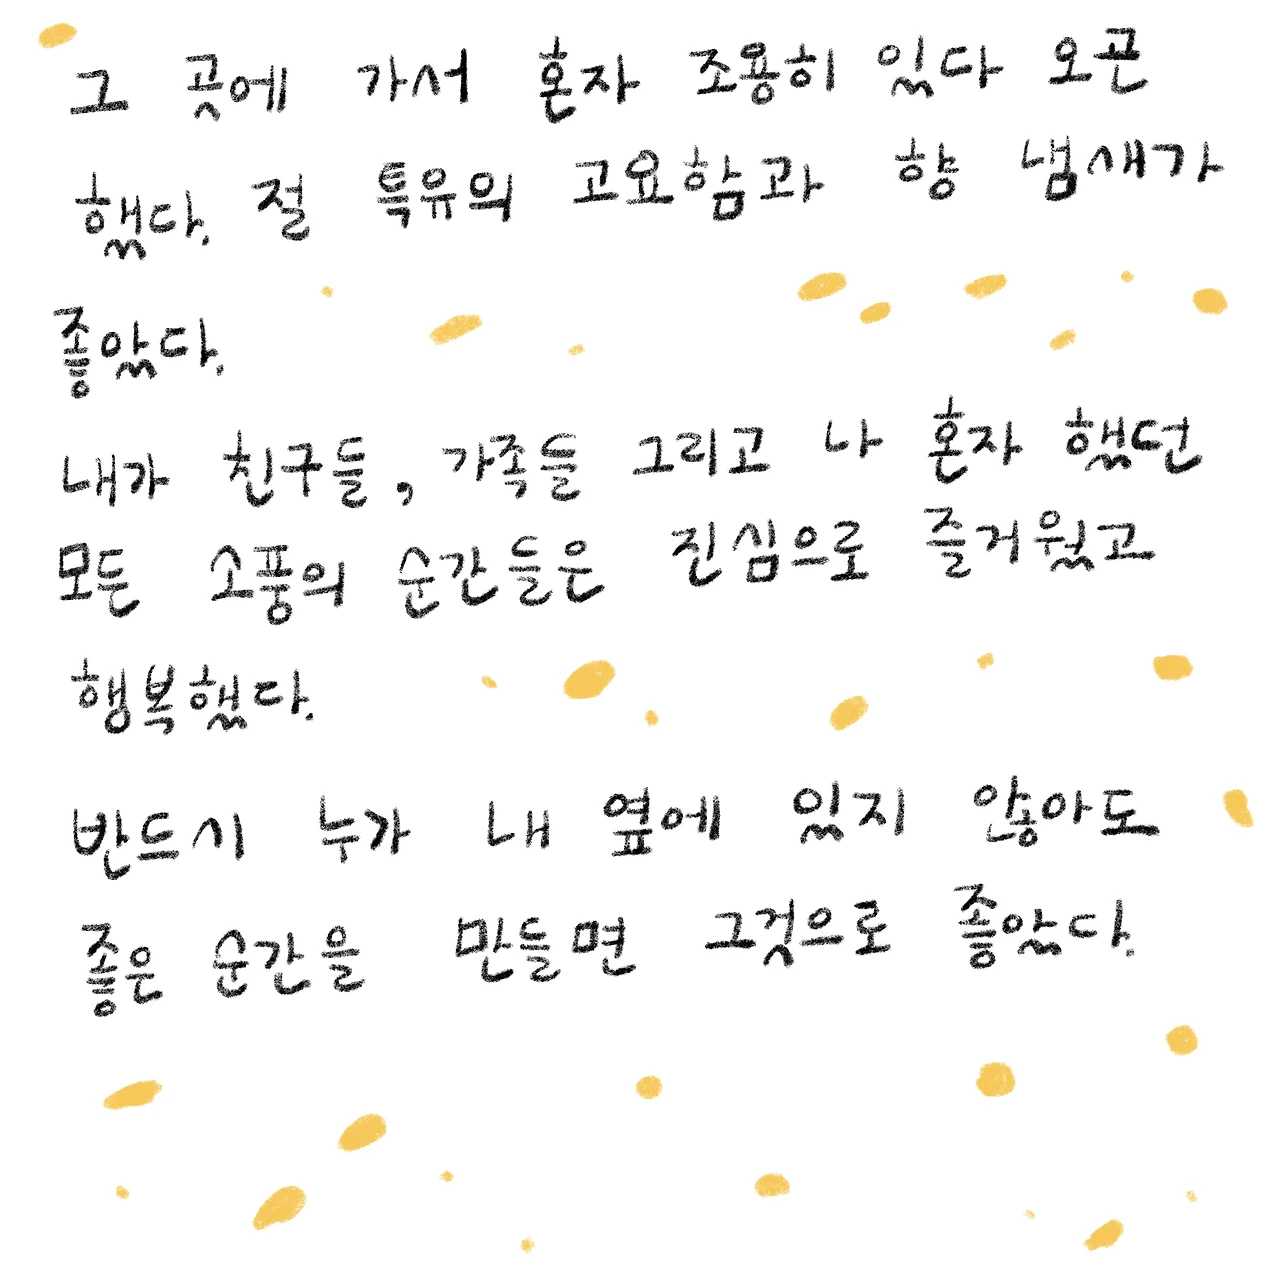 그 곳에 가서 혼자 조용히 있다 오곤
했다. 절 특유의 고요함과 향 냄새가
좋았다.
내가 친구들, 가족들 그리고 나 혼자 했던
모든 소풍의 순간들은 진심으로 즐거웠고
행복했다.
반드시 누가 내 옆에 있지 않아도
좋은 순간을 만들면 그것으로 좋았다.